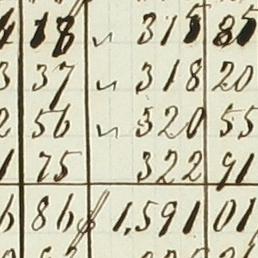 18 " 315 85
3 37 " 318 20
2 56 " 320 55
1 75 322 91
6 86 $ 1,591 01